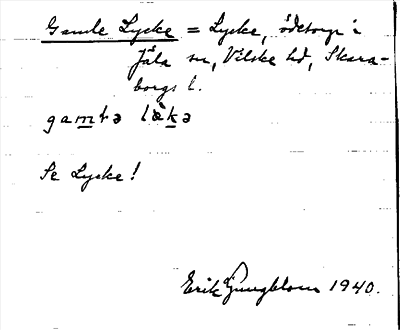 Gamle Lycke = Lycke, ödetorp i
Jäla sn, Vilske hd, Skara-
borgs l.
gamtə lækə
Se Lycke!
Erik Ljungblom 1940.